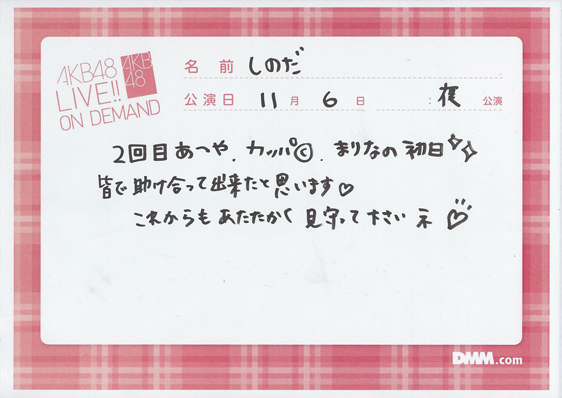 AKB48
LIVE!!
ON DEMAND
AKB
48
名前 しのだ
公演日 11月6日 : 夜 公演
2回目あつや、カッパ©、まりなの初日
皆で助け合って出来たと思います♡
これからもあたたかく見守って下さいネ♡
DMM.com